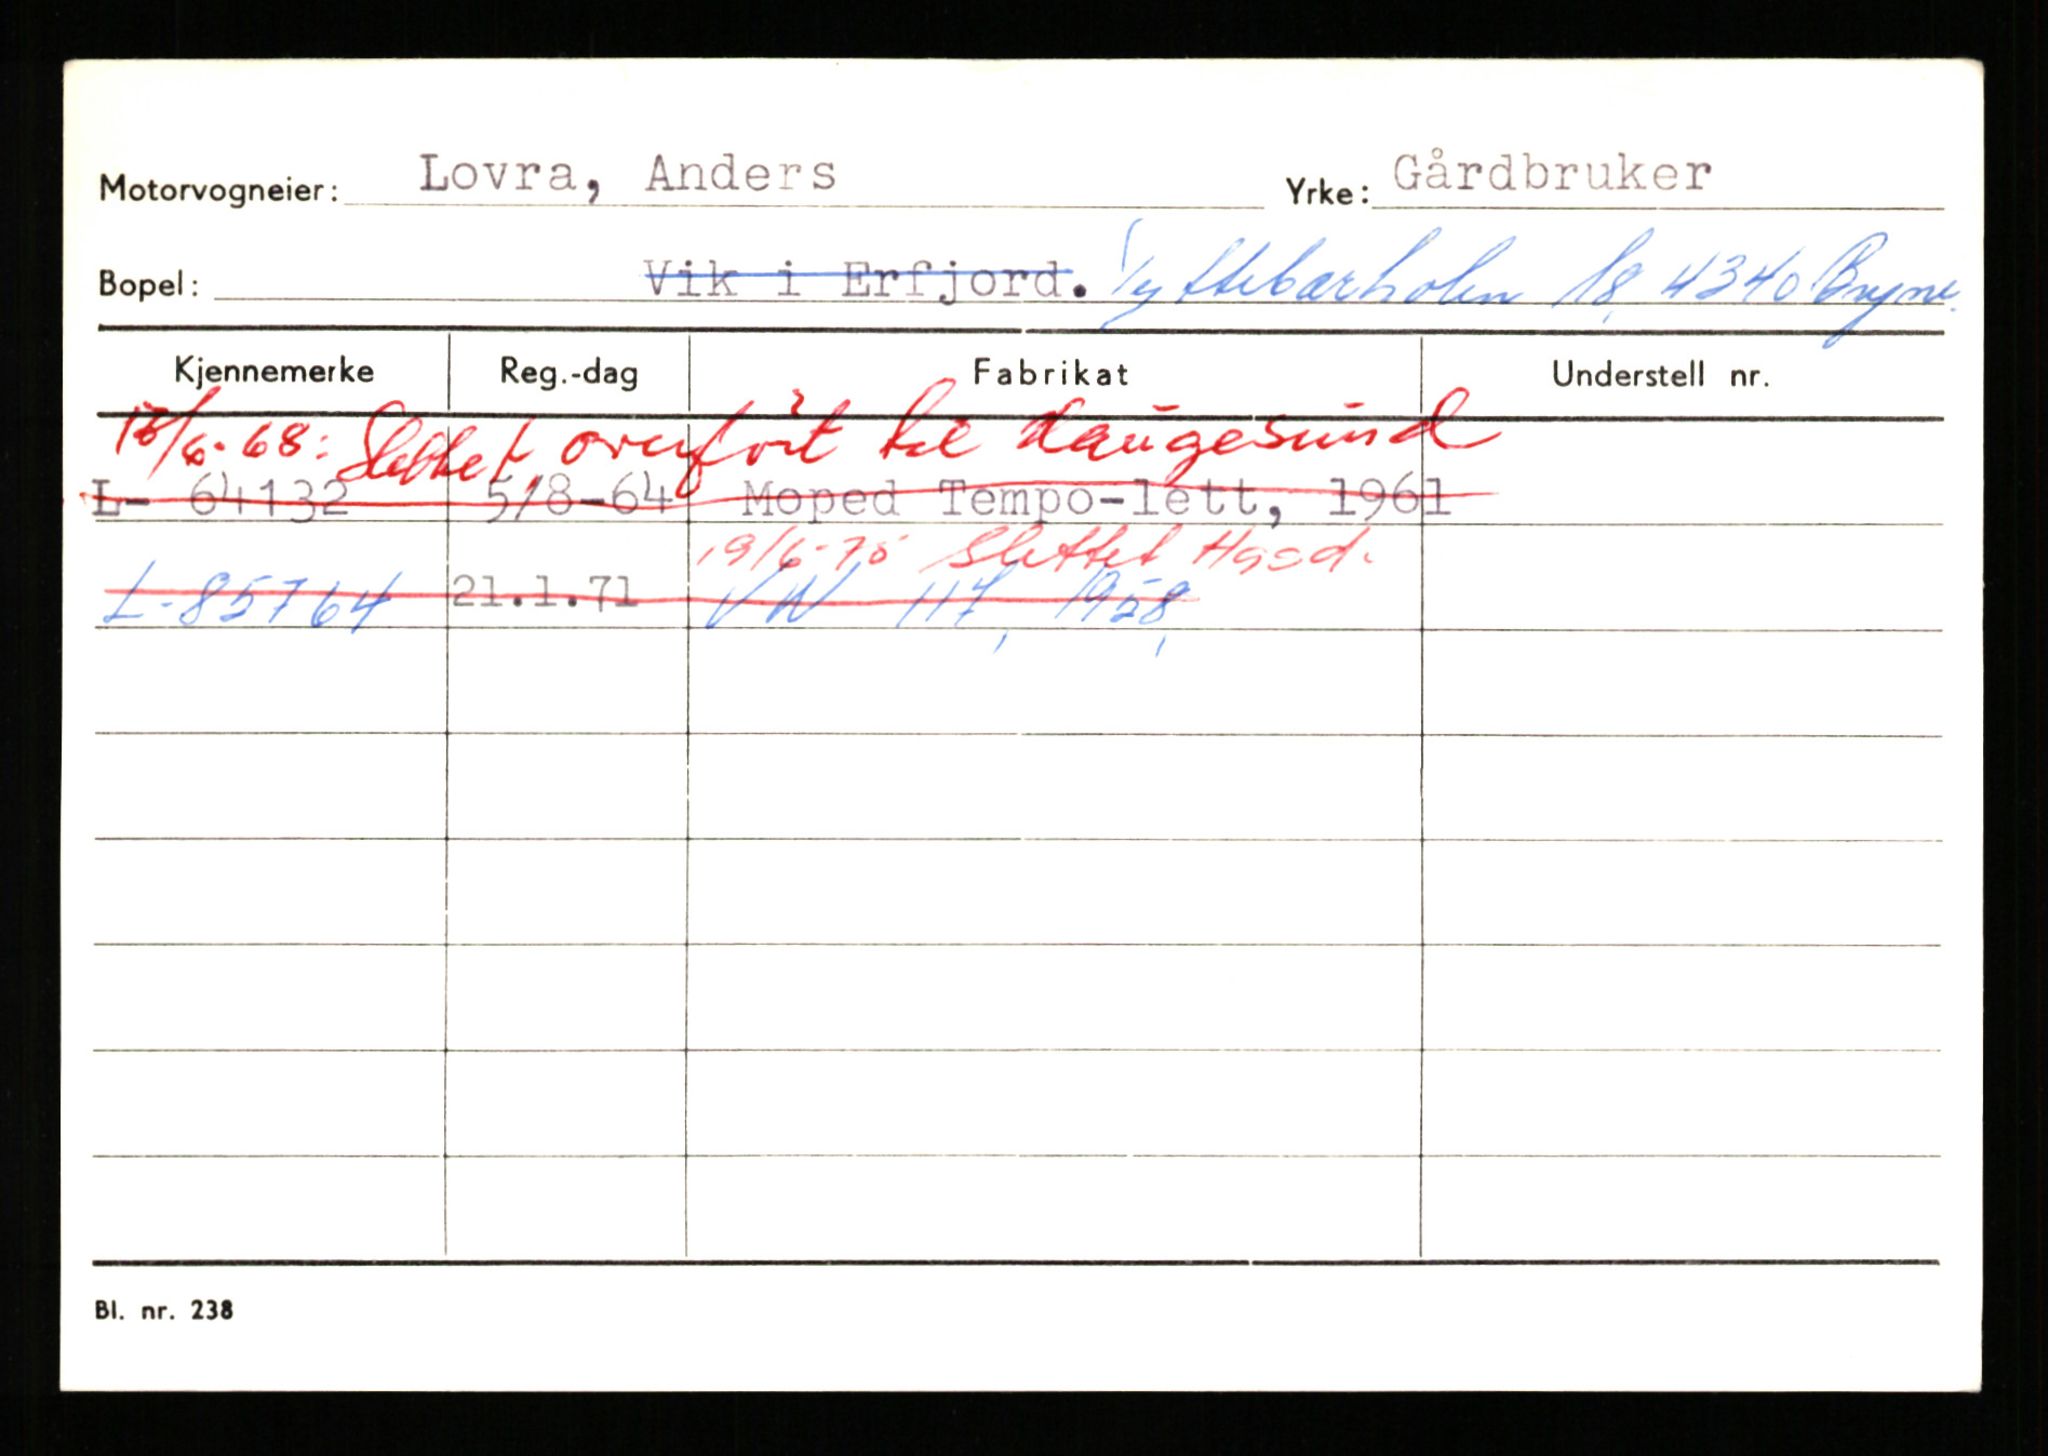 Motorvogneier: Lovra, Anders Yrke: Gårdbruker
Bopel: Vik i Erfjord. 18, 4340 Bryne.
Kjennemerke Reg.-dag Fabrikat Understell nr.
/6-68: Slettet, overført til Haugesund
L- 64132 5/8-64 Moped Tempo-lett, 1961
19/6-75 Slettet Hgsd.
L-85764 21.1.71 VW 117, 1958,
Bl. nr. 238